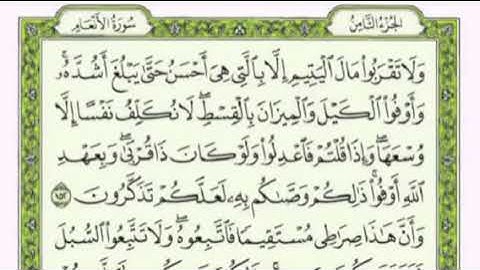 الجزء الثامن
سورة الأنعام
وَلَا تَقْرَبُوا۟ مَالَ ٱلْيَتِيمِ إِلَّا بِٱلَّتِى هِىَ أَحْسَنُ حَتَّىٰ يَبْلُغَ أَشُدَّهُۥ
وَأَوْفُوا۟ ٱلْكَيْلَ وَٱلْمِيزَانَ بِٱلْقِسْطِ لَا نُكَلِّفُ نَفْسًا إِلَّا
وُسْعَهَا وَإِذَا قُلْتُمْ فَٱعْدِلُوا۟ وَلَوْ كَانَ ذَا قُرْبَىٰ وَبِعَهْدِ
ٱللَّهِ أَوْفُوا۟ ذَٰلِكُمْ وَصَّىٰكُم بِهِۦ لَعَلَّكُمْ تَذَكَّرُونَ ١٥٢
وَأَنَّ هَٰذَا صِرَٰطِى مُسْتَقِيمًا فَٱتَّبِعُوهُ وَلَا تَتَّبِعُوا۟ ٱلسُّبُلَ